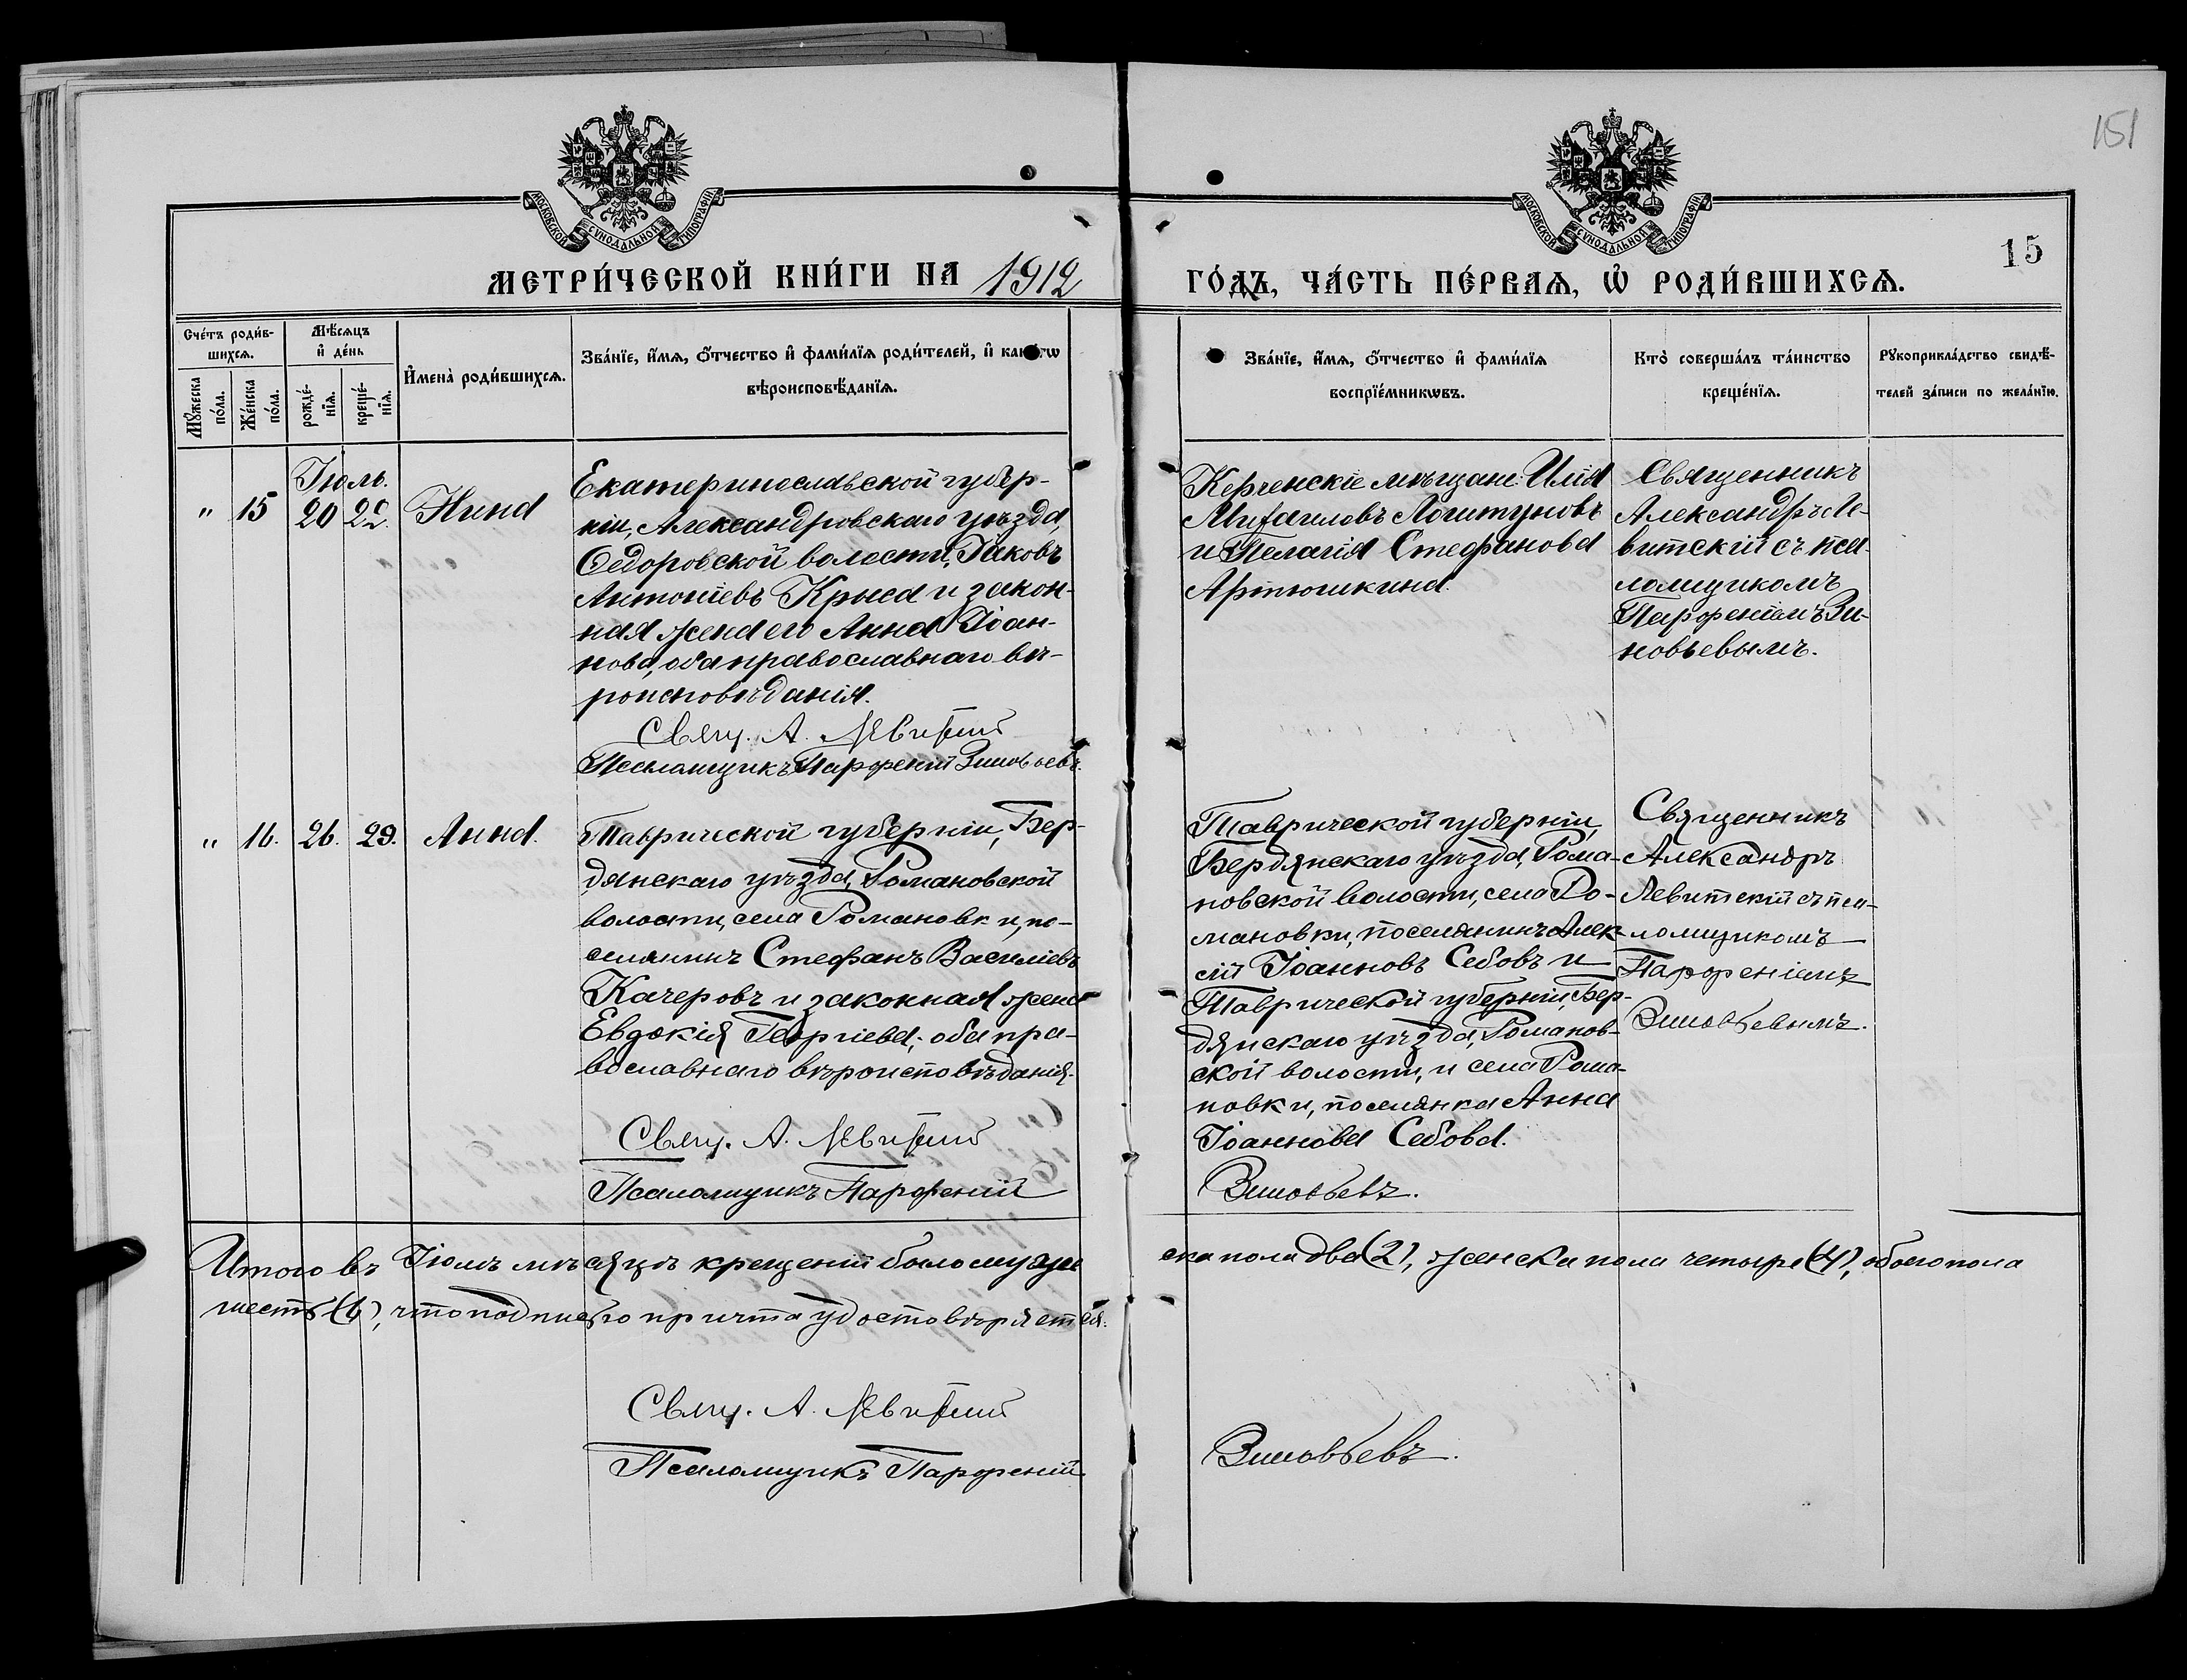 151
МОСКОВСКОЙ СѴНОДАЛЬНОЙ ТИПОГРАФІИ
МОСКОВСКОЙ СѴНОДАЛЬНОЙ ТИПОГРАФІИ
15
МЕТРИ́ЧЕСКОЙ КНИ́ГИ НА 1912 ГО́ДЪ, ЧА́СТЬ ПЕ́РВАѦ, Ѡ҆ РОДИ́ВШИХСѦ.
Сче́тъ роди́в-
шихсѧ.
Мꙋ́жеска
по́ла.
Же́нска
по́ла.
Мѣ́сѧцъ
и҆ де́нь
рожде́-
нїѧ.
креще́-
нїѧ.
И҆мена̀ роди́вшихсѧ.
Зва́нїе, и҆́мѧ, ѻ҆́тчество и҆ фами́лїѧ роди́телей, и҆ како́гѡ
вѣроисповѣ́данїѧ.
Зва́нїе, и҆́мѧ, ѻ҆́тчество и҆ фами́лїѧ
воспрїе́мникѡвъ.
Кто̀ соверша́лъ та́инство
креще́нїѧ.
Рꙋкоприкла́дство свидѣ́-
телей за́писи по жела́нїю.
Іюль.
" 15 20 22. Нина
Екатеринославской губер-
ніи, Александровскаго уѣзда,
Ѳедоровской волости, Іаковъ
Антоніевъ Крыса и закон-
ная жена его Анна Іоан-
нова, оба православнаго вѣ-
роисповѣданія.
Свящ. А. Левитскій
Псаломщикъ Парфеній Зиновьевъ.
Керченскіе мѣщане: Илія
Михаиловъ Логитуновъ
и Пелагія Стефанова
Артюшкина.
Священникъ
Александръ Ле-
витскій съ пса-
ломщикомъ
Парфеніемъ Зи-
новьевымъ.
" 16. 26. 29. Анна.
Таврической губерніи, Бер-
дянскаго уѣзда, Романовской
волости, села Романовки, по-
селянинъ Стефанъ Василіевъ
Качеровъ и законная жена
Евдокія Георгіева; оба пра-
вославнаго вѣроисповѣданія.
Свящ. А. Левитскій
Псаломщикъ Парфеній
Таврической губерніи,
Бердянскаго уѣзда, Рома-
новской волости, села Ро-
мановки, поселянинъ Алек-
сій Іоанновъ Себовъ и
Таврической губерніи, Бер-
дянскаго уѣзда, Романов-
ской волости, и села Рома-
новки, поселянка Анна
Іоаннова Себова.
Зиновьевъ.
Священникъ
Александръ
Левитскій съ пса-
ломщикомъ
Парфеніемъ
Зиновьевымъ.
Итого въ Іюлѣ мѣсяцѣ крещеній было муже
ска пола два (2), женска пола четыре (4), обоего пола
шесть (6), что подписью причта удостовѣряется.
Свящ. А. Левитскій
Псаломщикъ Парфеній
Зиновьевъ.